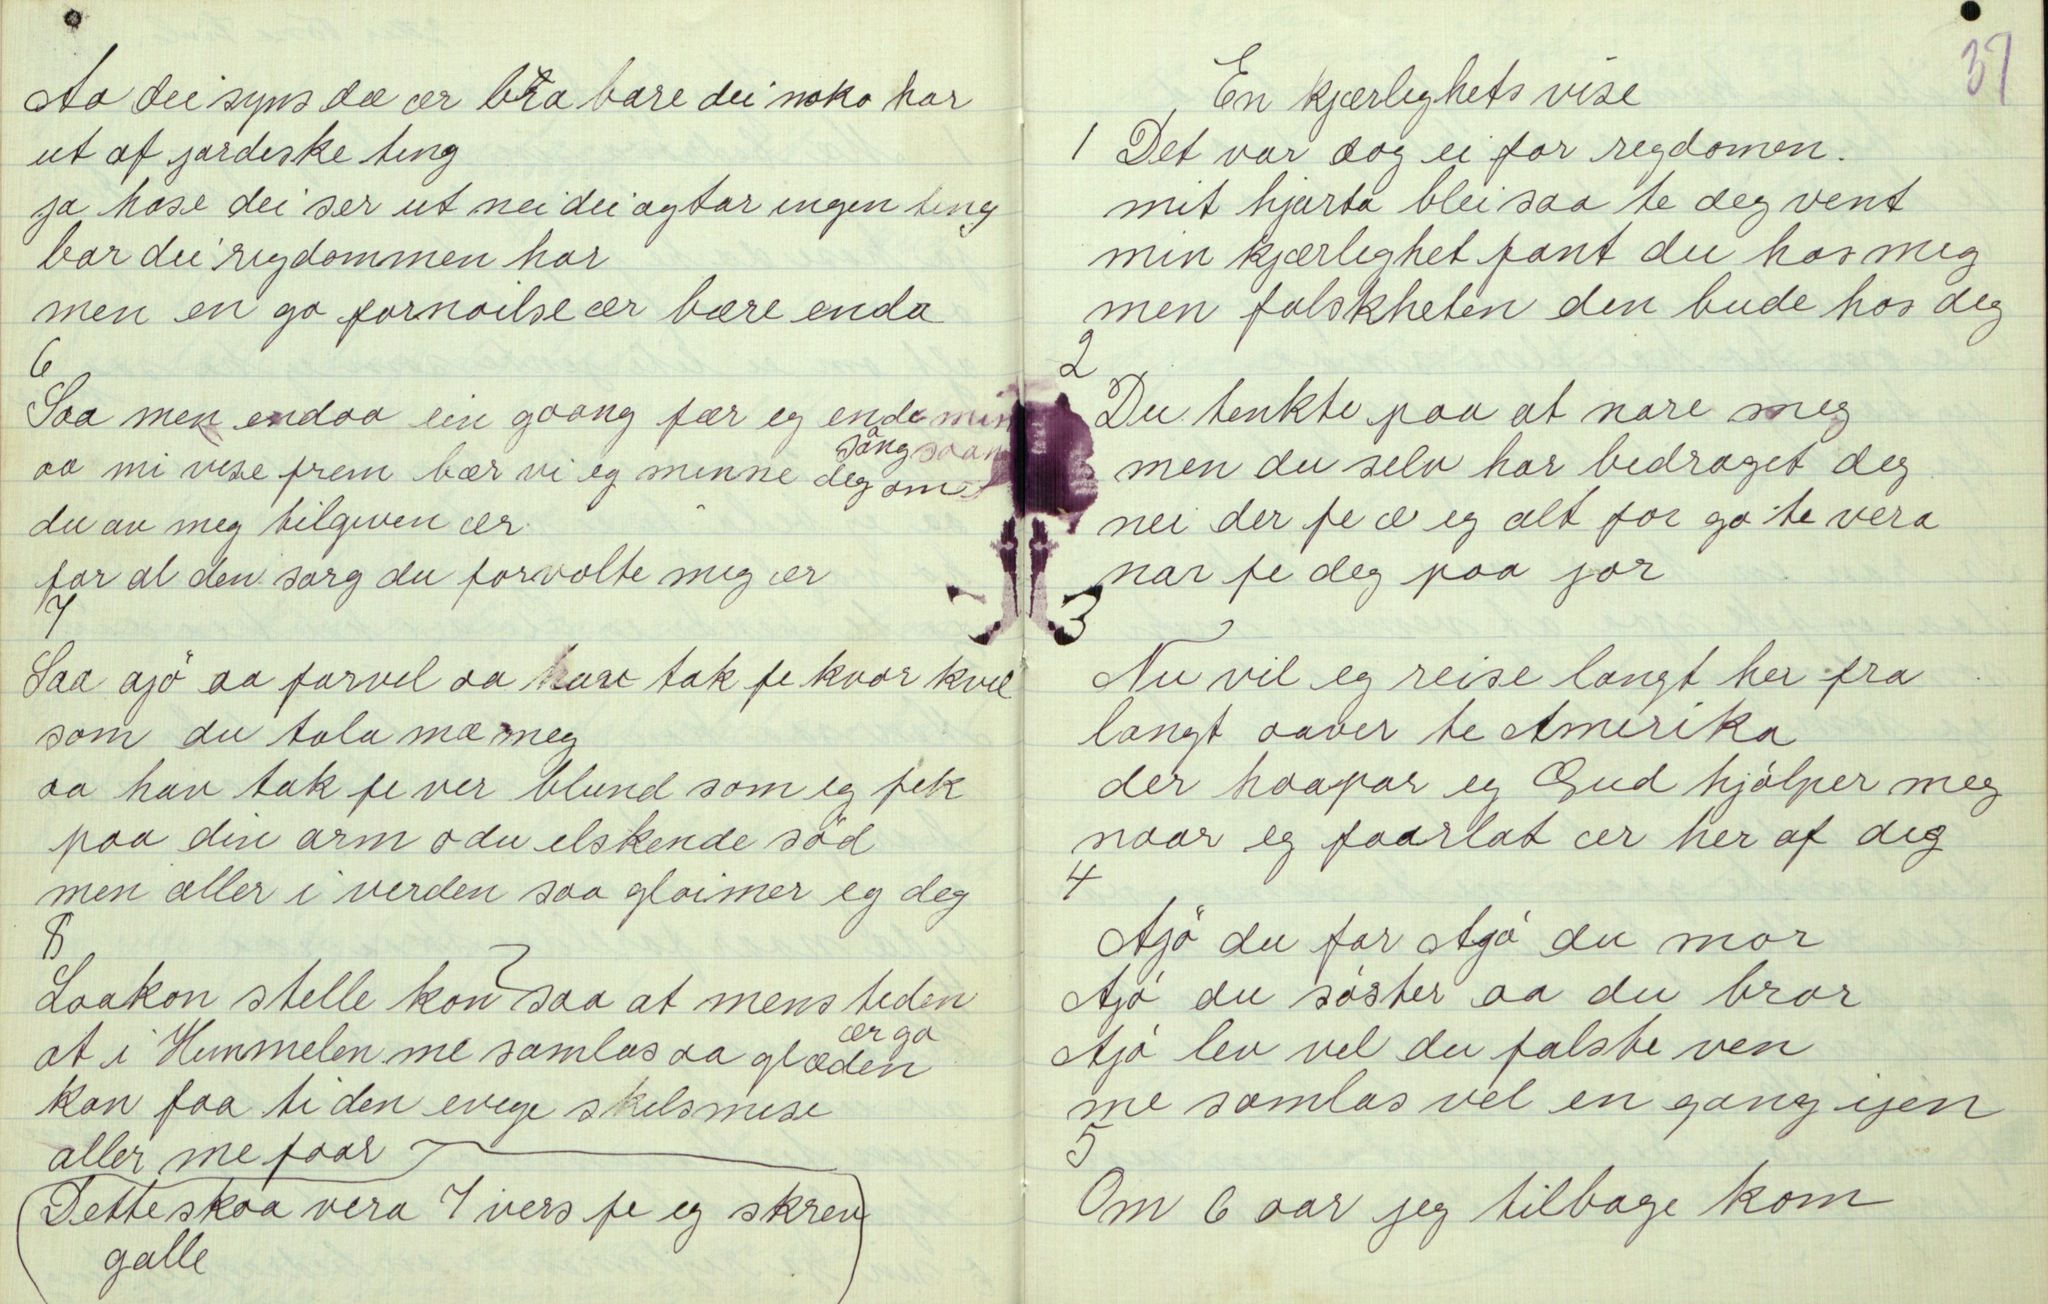 Aa dei syns dæ ær bra bare dei noko har
ut af jordiske ting
ja hose dei ser ut nei dei agtar ingen ting
bar dei rigdommen har
men en go fornoilse ær bære enda
6
Saa men endaa ein goang fær eg enda min
sång saan
aa mi vise frem bær vi eg minne deg om
du av meg tilgiven ær
for al den sorg du forvolte meg ær
7
Saa ajö aa farvel aa tak fe kvar kvel
som du tala mæ meg
aa hav tak fe ver blund som eg fek
paa din arm o du elskende söd
men aller i verden saa gloimer eg deg
8
Laakon stelle kon saa at mens tiden
ær go
at i Himmelen me samlas aa glæden
kan faa ti den evege skilsmise
aller me faar
Dette skoa vera 7 vers fe eg skrev
galle
37
En kjærlighets vise
1 Det var dog ei for regdomen.
mit hjarta blei saa te deg vent
min kjærlighet fant du hos meg
men falskheten den bude hos deg
2
Du tenkte paa at nare meg
men du selv har bedraget deg
nei der fe æ eg alt for go te vera
nar fe deg paa jor
3
Nu vil eg reise langt her fra
langt aaver te Amerika
der haapar eg Gud hjölper meg
naar eg faarlat ær her af dig
4
Ajö du far Ajö du mor
Ajö du söster aa du bror
Ajö lev vel du falste ven
me samlas vel en gang ijen
5
Om 6 aar jeg tilbage kom